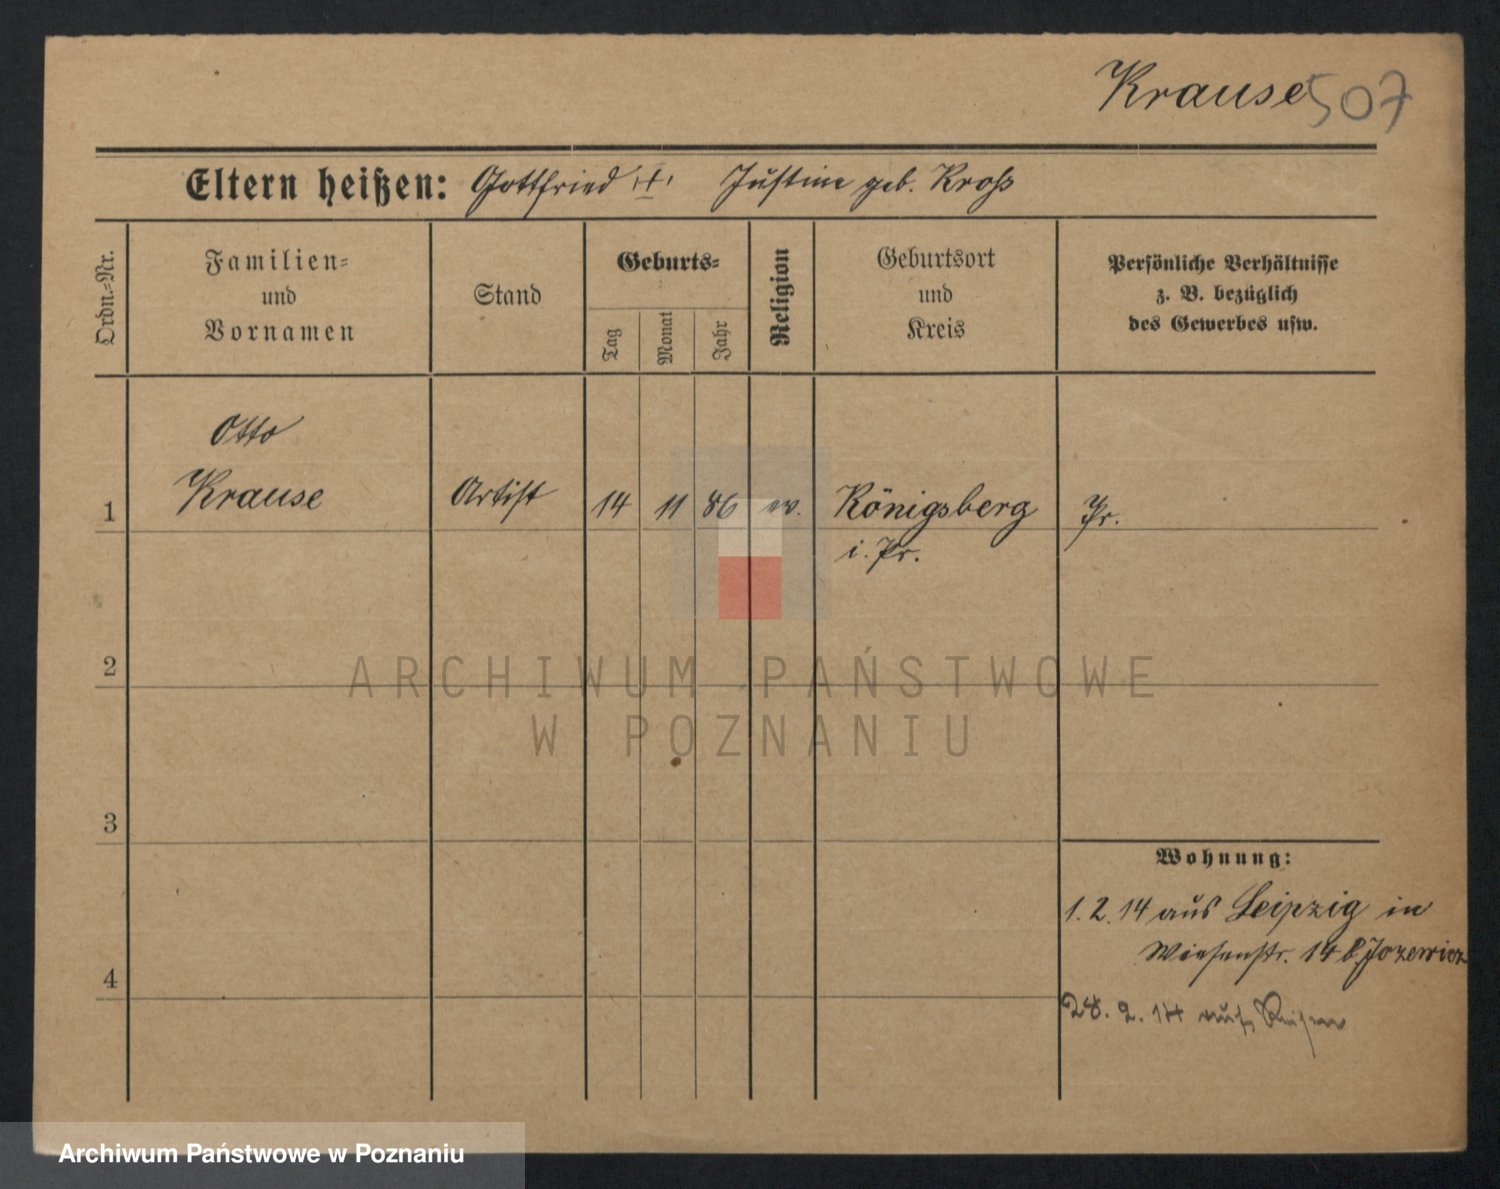 Krause 507
Eltern heißen: Gottfried + Justine geb. Kroß
Ordn.-Nr.
Familien-
und
Vornamen
Stand
Geburts-
Tag
Monat
Jahr
Religion
Geburtsort
und
Kreis
Persönliche Verhältnisse
z. B. bezüglich
des Gewerbes usw.
Otto
1 Krause Artist 14 11 86 ev. Königsberg Pr.
i. Pr.
2
ARCHIWUM PAŃSTWOWE
W POZNANIU
3
Wohnung:
1.2.14 aus Leipzig in
Wiesenstr. 14 b. Jozewicz
4
28.2.14 auf Reisen
Archiwum Państwowe w Poznaniu